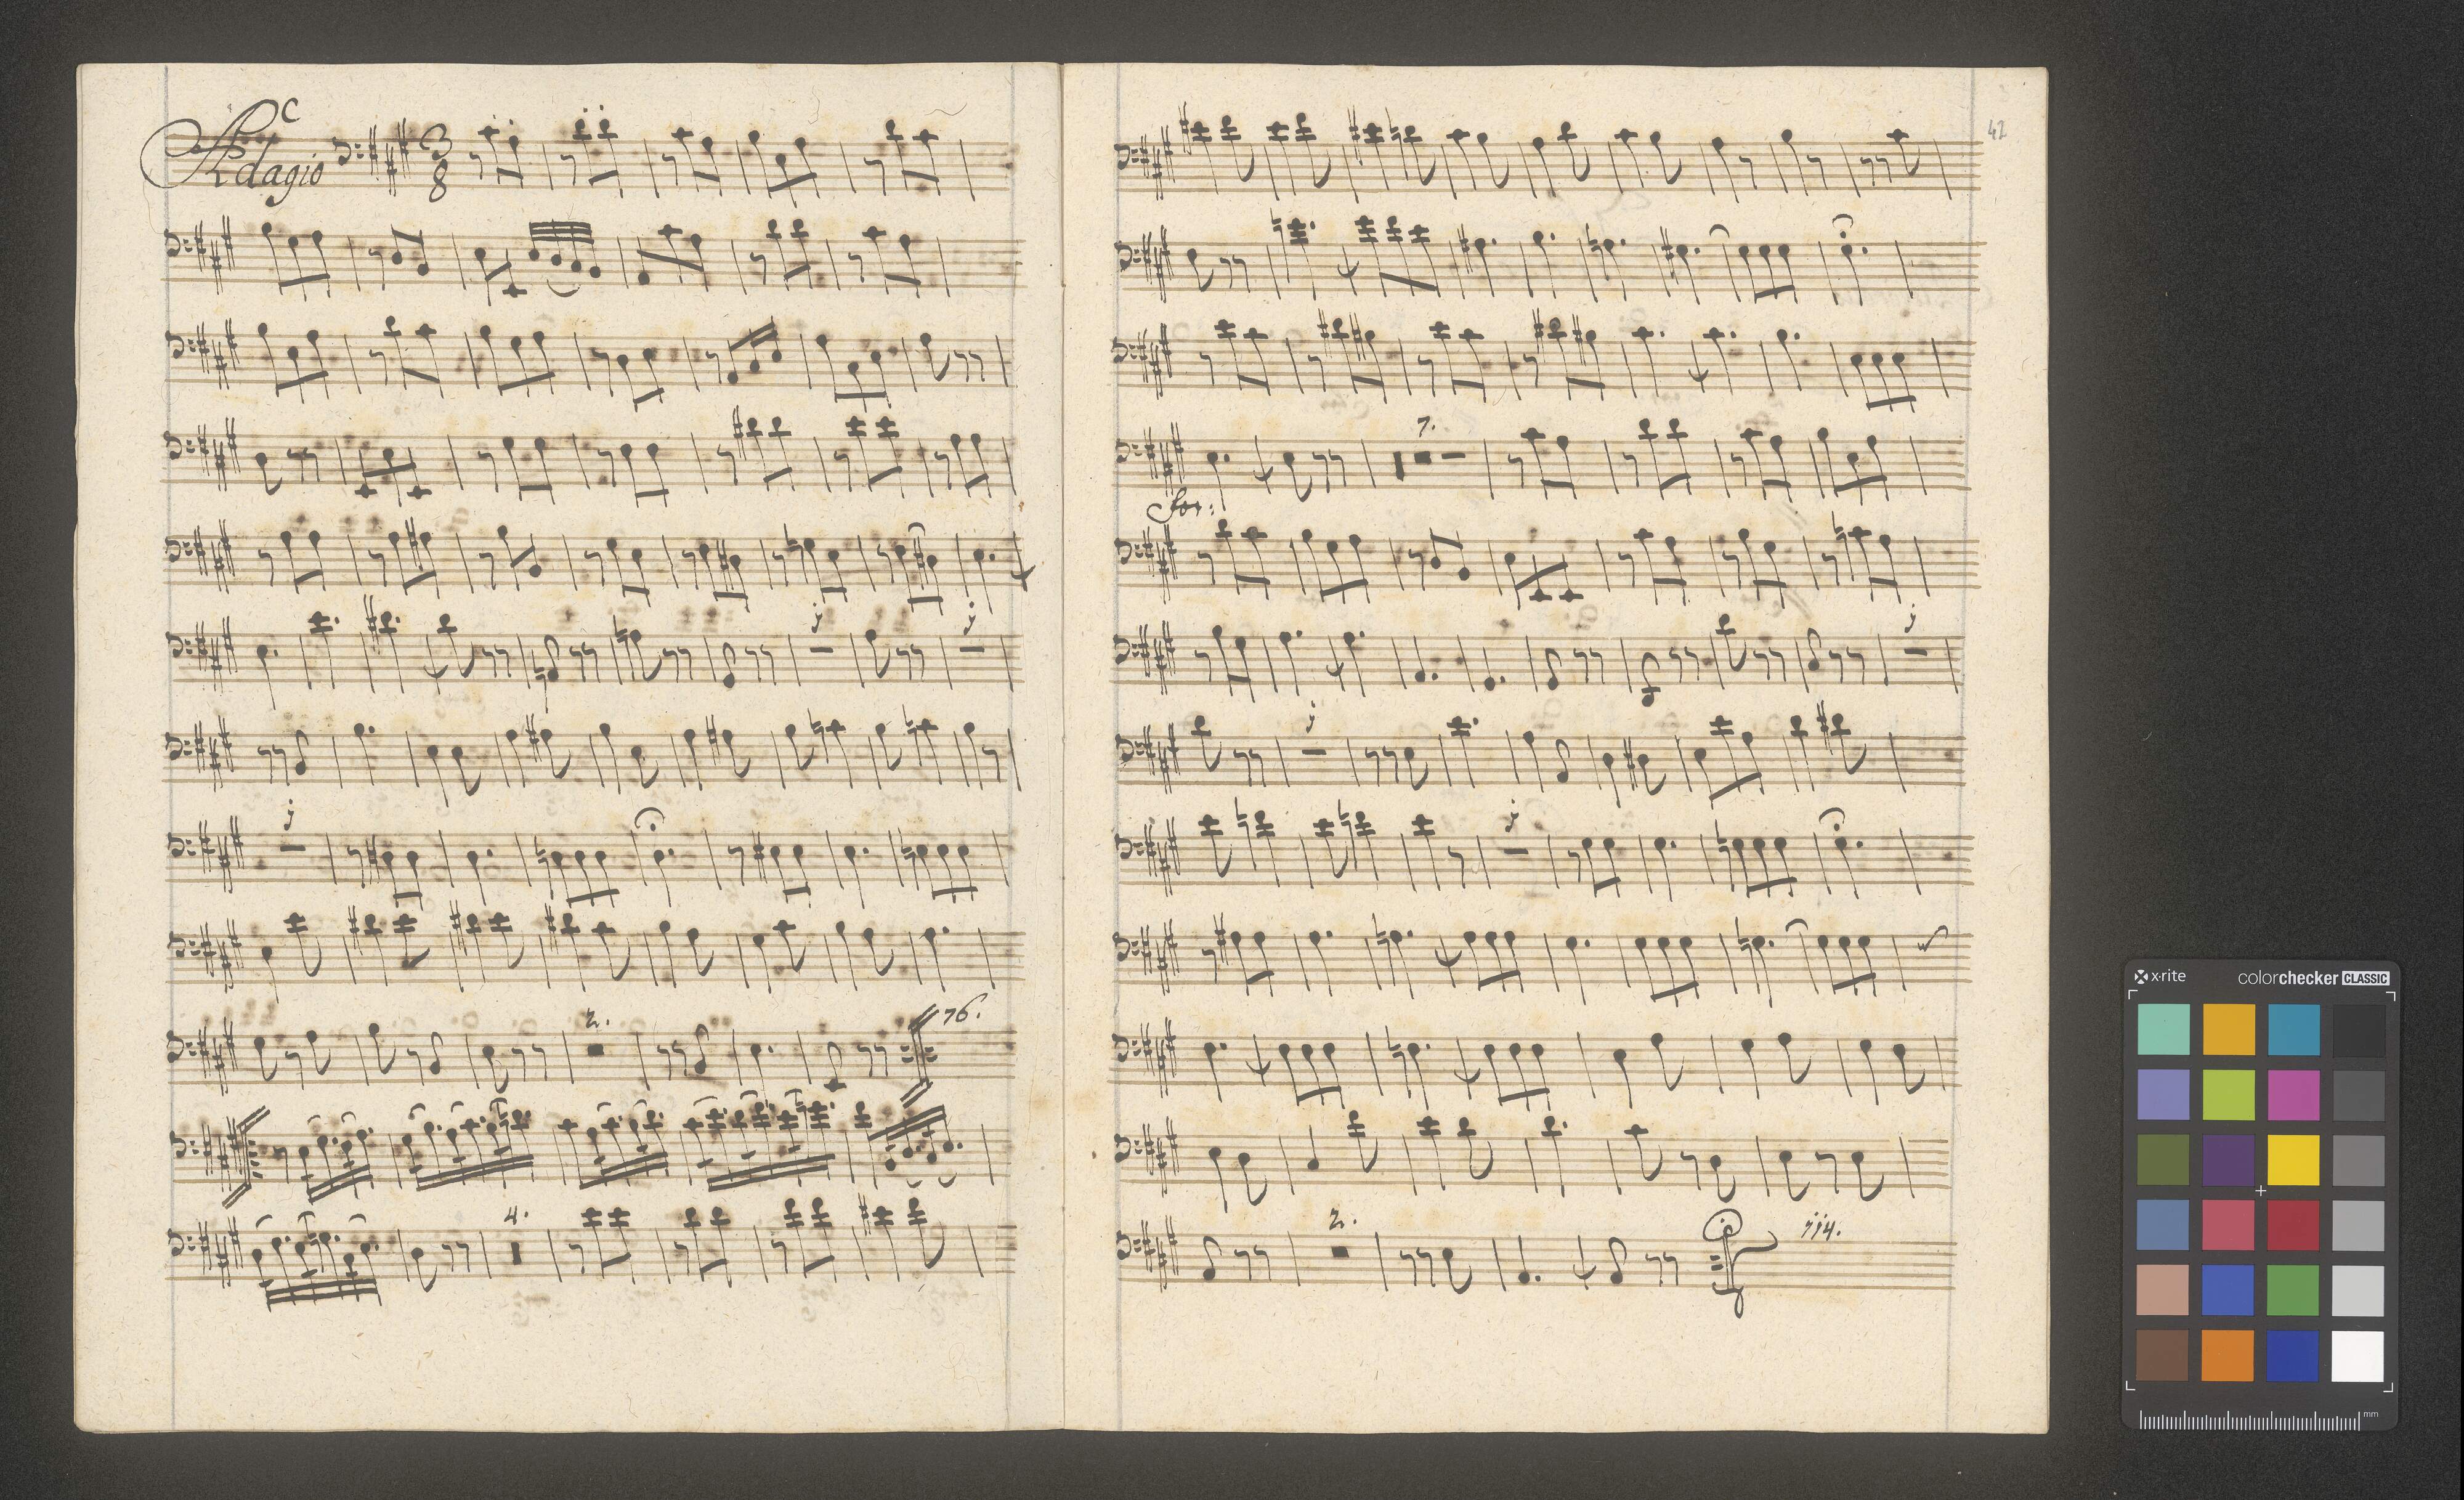 C
Adagio
3
8
j
j
j
2.
76.
4.
42
7.
for:
j
j
j
2.
114.
x-rite
colorchecker CLASSIC
mm